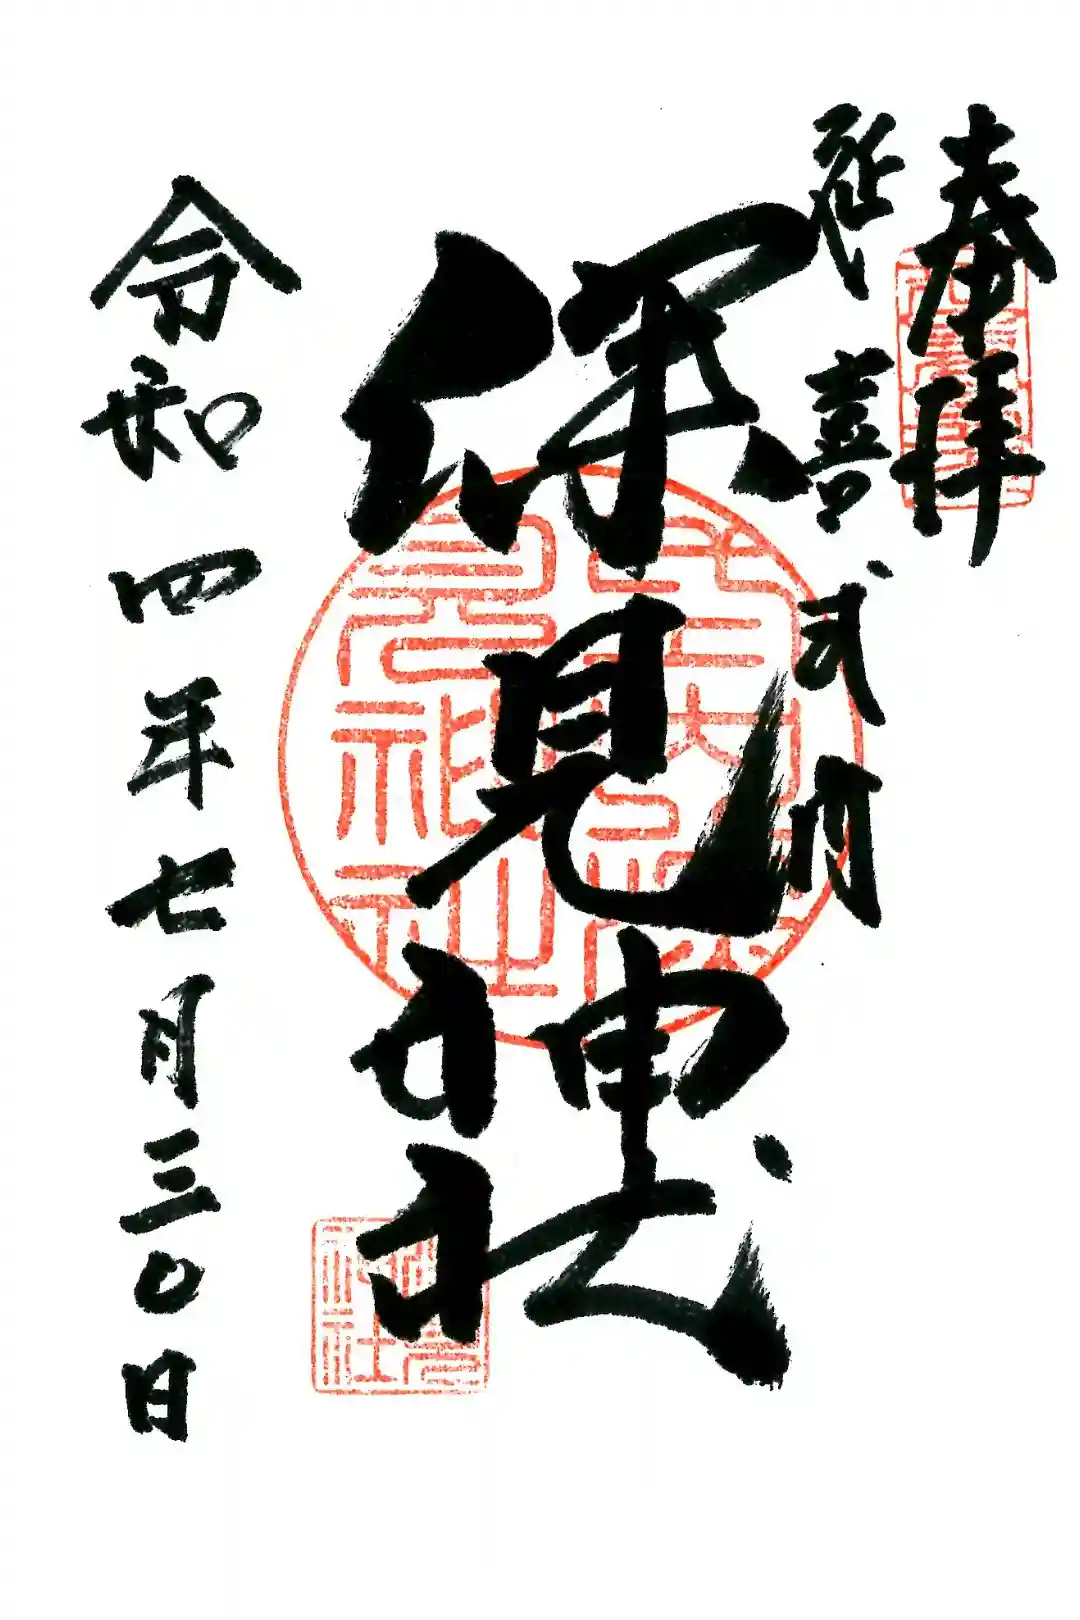 奉拝
延喜式内
深見神社
令和四年七月三〇日
深見
神社